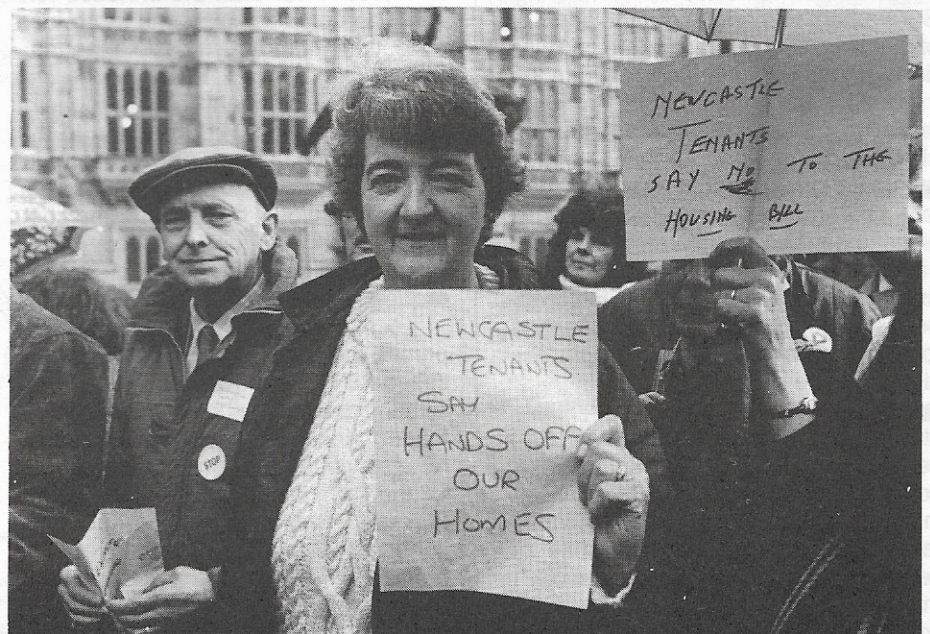 NEWCASTLE
TENANTS
SAY NO TO THE
HOUSING BILL
NEWCASTLE
TENANTS
SAY
HANDS OFF
OUR
HOMES
STOP